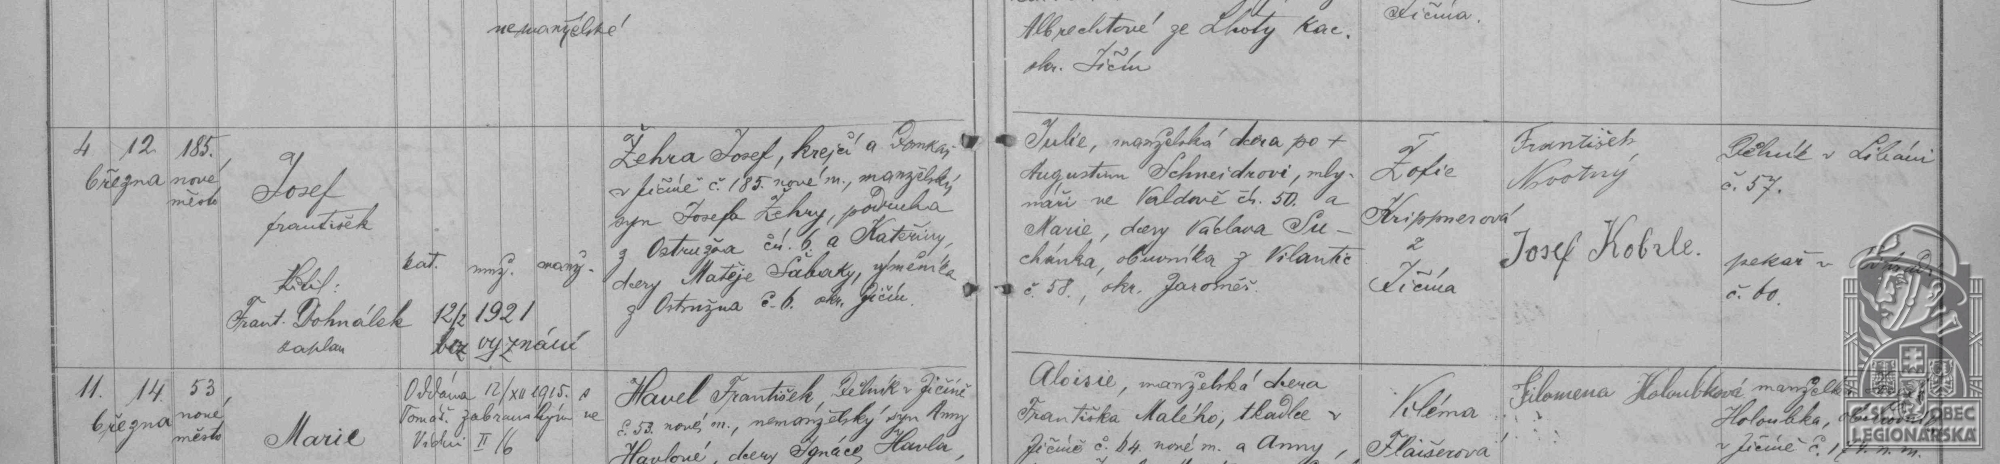 nemanželské
Albrechtové ze Lhoty Kac.
okr. Jičín
Jičína.
4 12. 185.
března nové
město
Josef
František
Křtil:
Frant. Dohnálek
kaplan
kat. muž. manž.
12/2 1921
bez vyznání
Žehra Josef, krejčí a
v Jičíně č. 185. nové m., manželský
syn Josefa Žehry, podruha
z Ostružna čís. 6. a Kateřiny,
dcery Matěje Sábaky, výměníka
z Ostružna č. 6. okr. Jičín.
Julie, manželská dcera po +
Augustinu Schneidrovi, mly-
náři ve Valdově čís. 50. a
Marie, dcery Václava Su-
chánka, obuvníka z Vilantic
č. 58., okr. Jaroměř.
Žofie
Krippnerová
z
Jičína
František
Novotný
Josef Kobrle.
Dělník v Libáni
č. 57.
pekař v
č. 60.
11. 14. 53
března nové
město
Marie
Oddána 12/XII 1915. s
Tomáš. Zabranským ve
Vídni II/6
Havel František, Dělník v Jičíně
č. 53. nové m., nemanželský syn Anny
Havlové, dcery Ignáce Havla,
Aloisie, manželská dcera
Františka Malého, tkadlce v
Jičíně č. 64. nové m. a Anny,
Viléma
Flaišerová
Filomena Holoubková manželka
Holoubka,
v Jičíně č.
ČESKÁ OBEC
LEGIONÁŘSKÁ